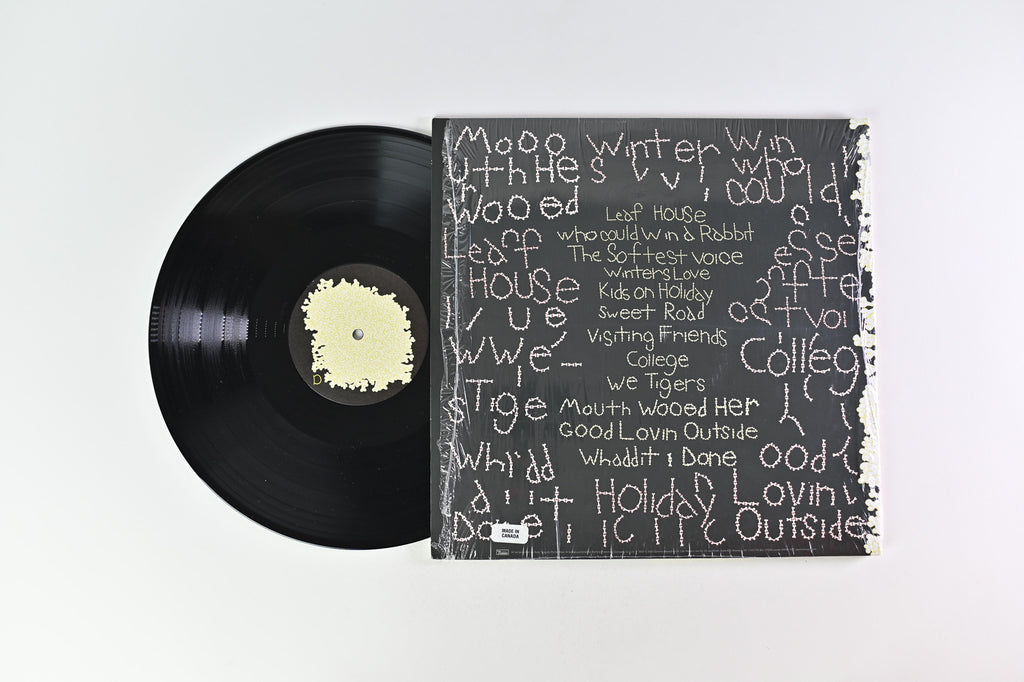 Mooo Winter Win
uthHe s who
Wooed could
Leaf House
who could Win a Rabbit
Leaff The Softest Voice esse
Winters Love
House Kids on Holiday ffte
Sweet Road
vue stvoi
Visiting Friends
wwe College College
We Tigers
sTige Mouth Wooed Her
Good Lovin Outside
Whadd Whaddit I Done ood
a i it Holiday Lovin
Done Outside
MADE IN
CANADA
D